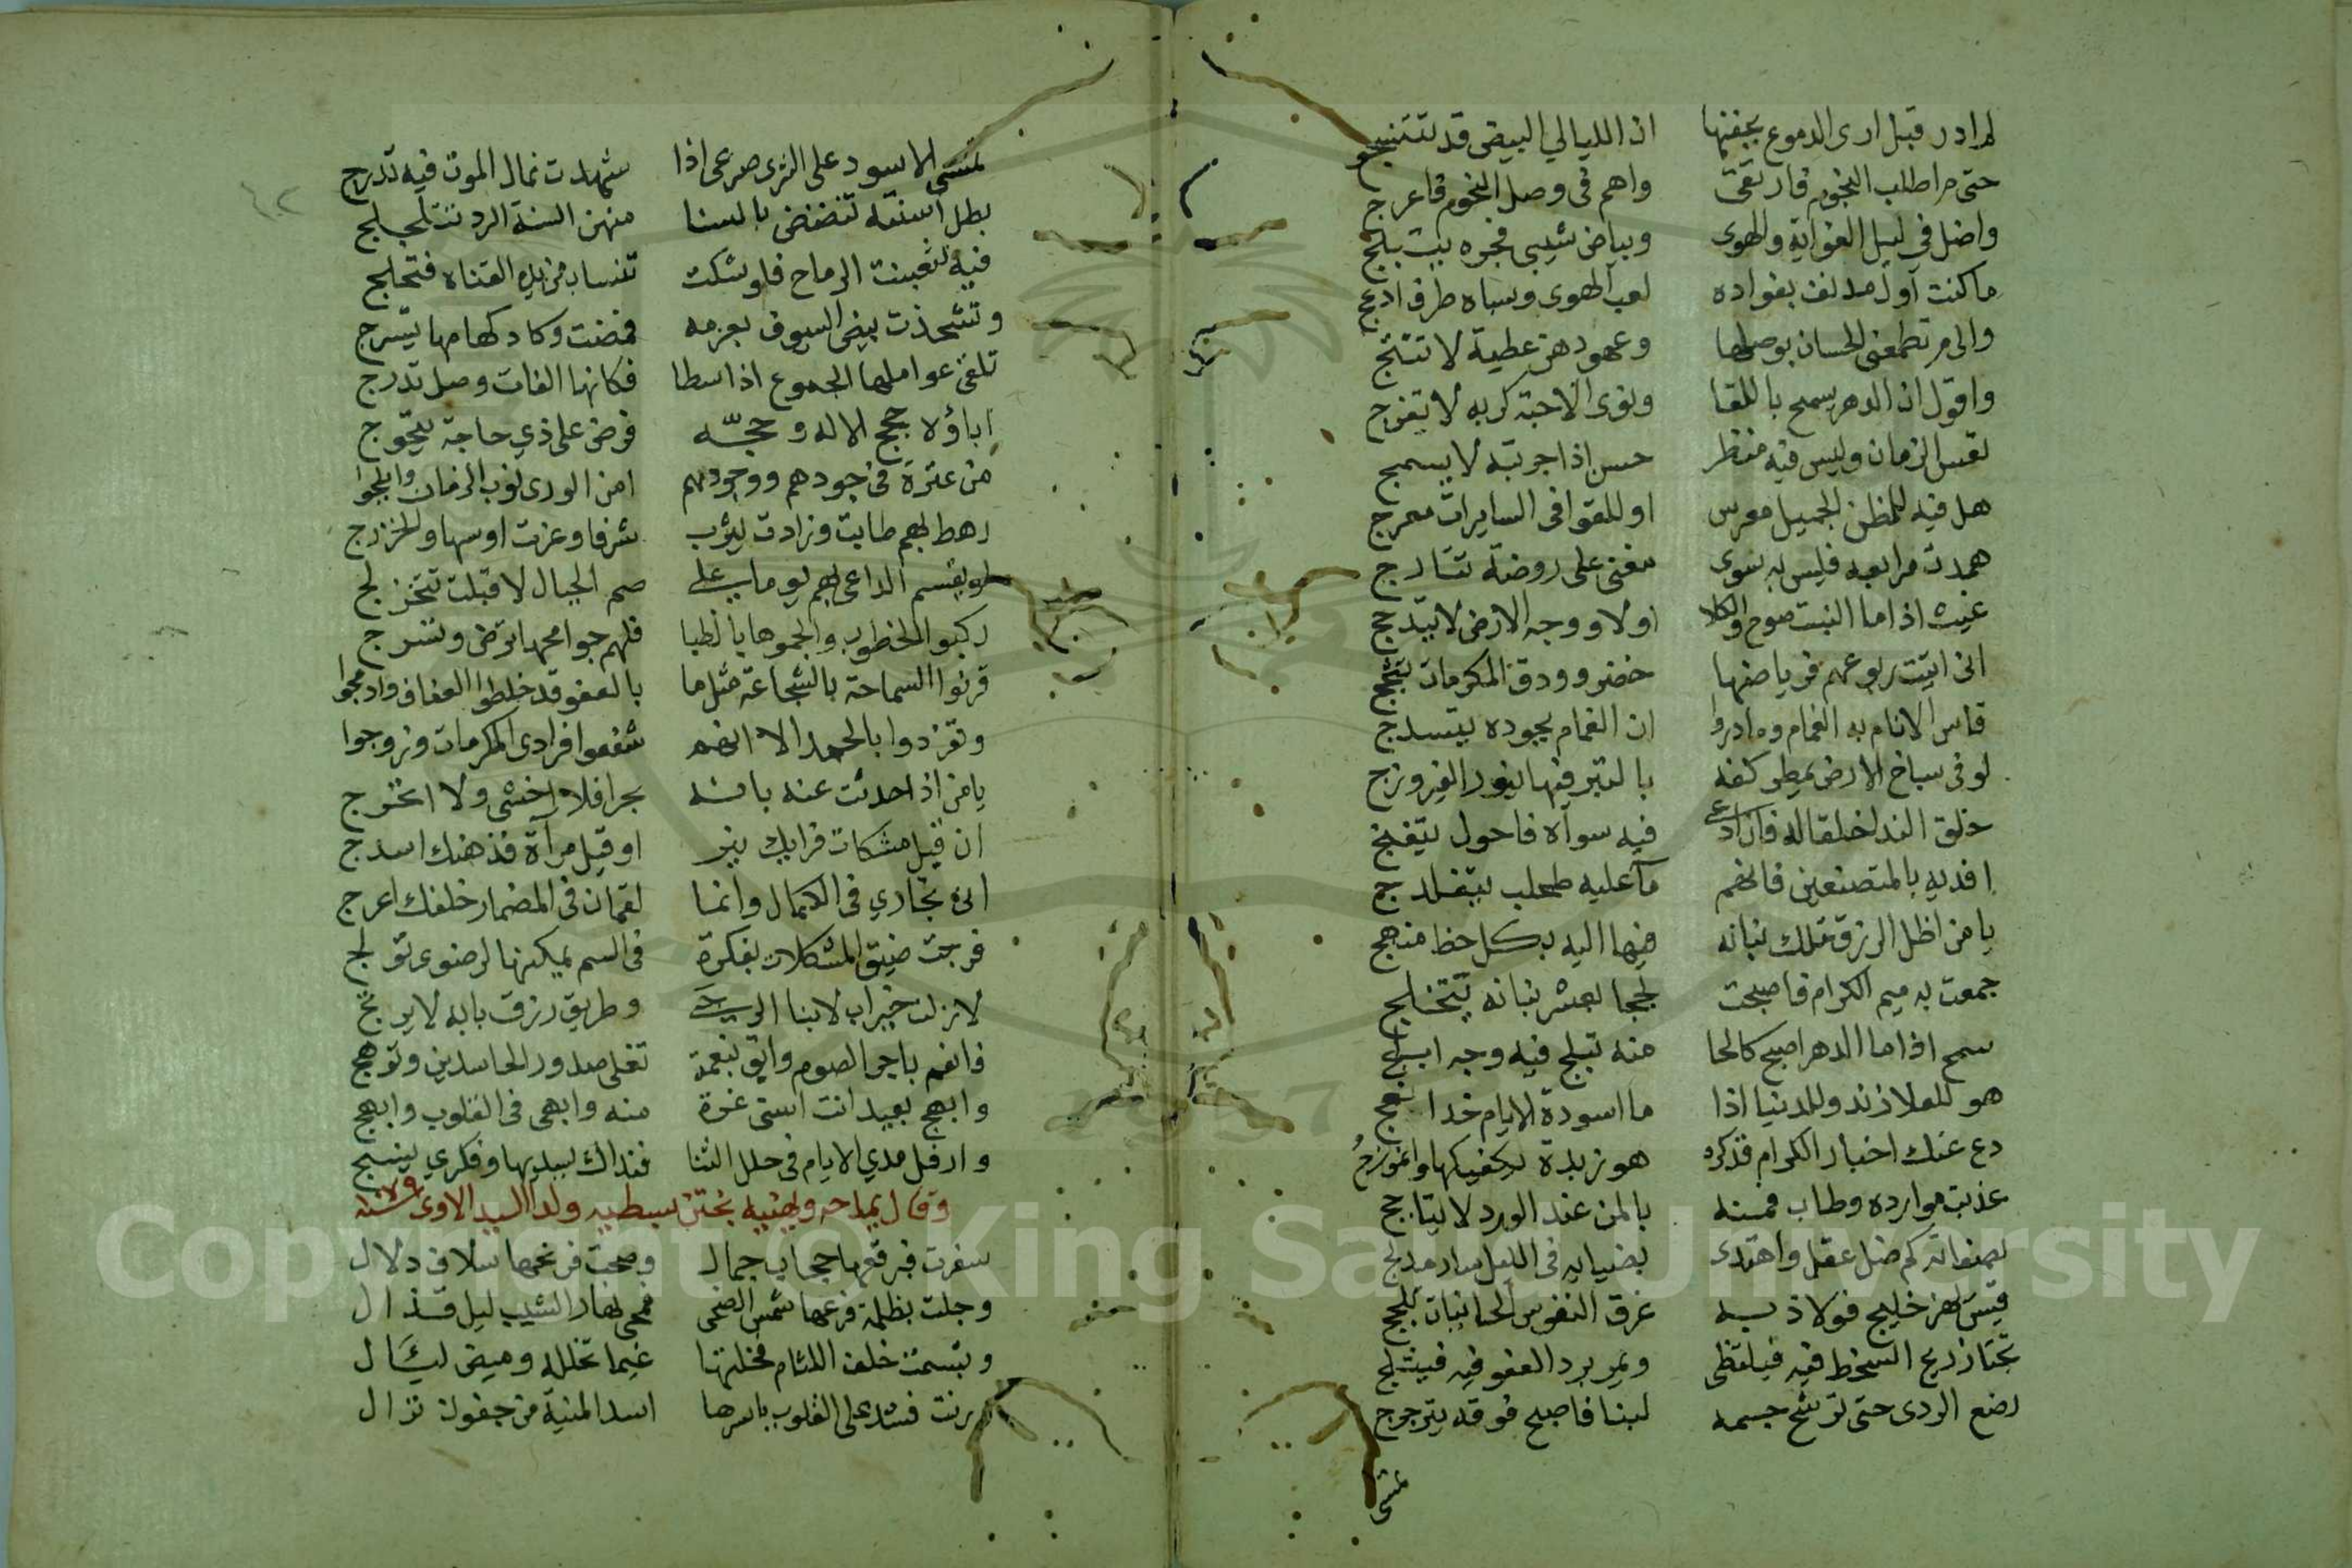 لم ادر قبل ارى الدموع بجفنها ان الليالي البيض قد تتبنسج
حتى م اطلب النجوم فارتقى واهم فى وصل النجوم فاعرج
واضل فى ليل الغواية والهوى وبياض شيبى فجره يتبلج
ما كنت اول مدنف بفواده لعب الهوى وسباه طرف ادعج
والى م تطمعنى الحسان بوصلها وعهودهن عطية لا تنتج
واقول ان الدهر يسمح باللقا ونوى الاحبة كربه لا يفرج
تعس الزمان وليس فيه منظر حسن اذا جربته لا يسمج
هل فيه للظن الجميل معرس او للقوافى السايرات معرج
همدت مرابعه فليس به سوى مغنى على روضة تتارج
غيث اذا ما النبت صوح والكلا اولاه ووجه الارض لا يتدبج
انى اتيت ربوعهم فرياضها خضر وودق المكرمات يثجج
قاس الانام به الغمام وما دروا ان الغمام بجوده يتسدج
لو فى سباخ الارض يمطر كفه بالتبر فيها ينور الفيروزج
خلق الندا خلقا له فان ادعى فيه سواه فاحول يتغنج
افديه بالمتصنعين فانهم ماء عليه طحلب
يا من اظل الرزق تملك بنانه فيها اليه بكل حظ منهج
جمعت به ميم الكرام فاصبحت لججا بعشر بنانه تتخلج
سمح اذا ما الدهر اصبح كالحا منه تبلج فيه وجه ابلج
هو للعلا زند وللدنيا اذا ما اسودة الايام خدا
دع عنك اخبار الكرام فذكره هو زبدة يكفيكها وانموزج
عذبت موارده وطاب فمنه بالمن عند الورد لا
بصفاته كم ضل عقل واهتدى بضيايه فى الليل سار مدلج
خليج فولاذ به غرق النفوس
تجتاز ريح السخط فيه فيلتظى ويمر برد العفو فيه فيثلج
رضع الردى حتى ترشح جسمه لبنا فاصبح فوقه يترجرج
تمسى
تمسى الاسود على الثرى صرعى اذا شهدت نمال الموت فيه تدرج
بطل اسنته تنضنض بالسنا منهن السنة الردى تتلجلج
فيه تثعبنت الرماح فلو شكت تنساب من ايدى القناه فتخلج
وتشحذت بيض السيوف بعزمه فمضت وكاد كهامها يتسرج
تلغى عواملها الجموع اذا سطا فكانها الفات وصل تدرج
اباؤه حجج الاله وحجه فرض على ذي حاجة يتحوج
من عترة فى جودهم ووجودهم امن الورى نوب الزمان وابلجوا
رهط بهم طابت وزادت يثرب شرفا وعزت اوسها والخزرج
لو يقسم الداعى بهم يوما على صم الجبال لاقبلت تتخزلج
ركبوا الخطوب والجموها بالظبا فلهم جوامحها تراض وتسرج
قرنوا السماحة بالشجاعة مثل ما بالعفو قد خلطوا العفاف وادمجوا
وتفردوا بالحمد الا انهم شفعوا فرادى المكرمات وزوجوا
يا من اذا حدثت عنه بانه بحر افلا اخشى ولا اتحرج
ان قيل مشكات فرايك نير او قيل مرآة فذهنك اسدج
انى تجارى فى الكمال وانما لقمان فى المضمار خلفك اعرج
فرجت ضيق المشكلات بفكرة فى السم يمكنها لرضوى تولج
لا زلت خير اب لابنا الرجى وطريق رزق بابه لا يرتج
فانعم باجر الصوم وابق بنعمة تغلى صدور الحاسدين وتوهج
وابهج بعيد انت اسنى غرة منه وابهى فى القلوب وابهج
وارفل مدى الايام فى حلل الثنا فنداك يسديها وفكري ينسج
وقال يمدحه ويهنيه بختن سبطيه ولدا السيد
سفرت فبرقعها حجاب جمال وصحت فرنحها سلاف دلال
وجلت بظلمة فرعها شمس الضحى فمحى نهار الشيب ليل قذال
وتبسمت خلف اللثام فخلتها غيما تخلله وميض ليئال
ورنت فشد على القلوب باسرها اسد المنية من جفون نزال
Copyright © King Saud University
1957